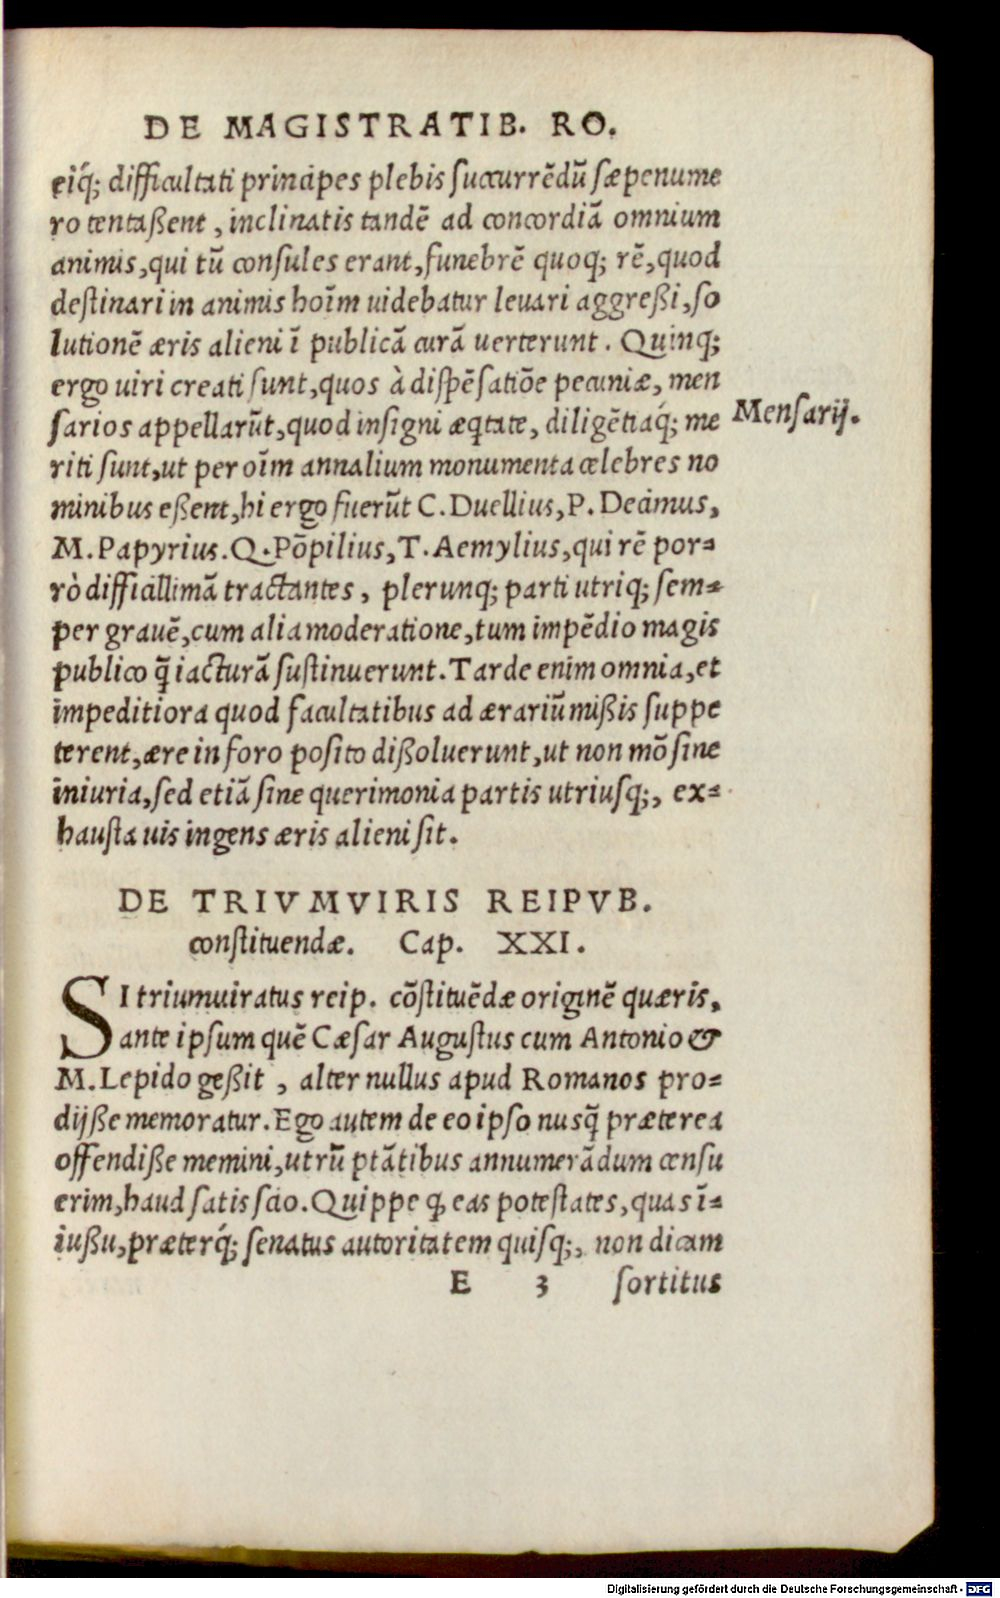 DE MAGISTRATIB. RO.
eiq́; difficultati principes plebis succurrēdū sæpenume
ro tentaßent, inclinatis tandē ad concordiā omnium
animis, qui tū consules erant, funebrē quoq; rē, quod
destinari in animis hoīm uidebatur leuari aggreßi, so
lutionē æris alieni ī publicā curā uerterunt. Quinq;
ergo uiri creati sunt, quos à dispēsatiōe pecuniæ, men
sarios appellarūt, quod insigni æqtate, diligētiaq́; me
Mensarij.
riti sunt, ut per oīm annalium monumenta celebres no
minibus eßent, hi ergo fuerūt C. Duellius, P. Decimus,
M. Papyrius. Q. Pōpilius, T. Aemylius, qui rē por-
rò difficillimā tractantes, plerunq; parti utriq; sem-
per grauē, cum alia moderatione, tum impēdio magis
publico q̄ iacturā sustinuerunt. Tarde enim omnia, et
impeditiora quod facultatibus ad ærariū mißis suppe
terent, ære in foro posito dißoluerunt, ut non mō sine
iniuria, sed etiā sine querimonia partis utriusq;, ex-
hausta uis ingens æris alieni sit.
DE TRIVMVIRIS REIPVB.
constituendæ. Cap. XXI.
SI triumuiratus reip. cōstituēdæ originē quæris,
ante ipsum quē Cæsar Augustus cum Antonio &
M. Lepido geßit, alter nullus apud Romanos pro-
dijße memoratur. Ego autem de eo ipso nusq̄ præterea
offendiße memini, utrū ptātibus annumerādum censu
erim, haud satis scio. Quippe q, eas potestates, quas ī-
iußu, præterq́; senatus autoritatem quisq;, non dicam
E 3 sortitus
Digitalisierung gefördert durch die Deutsche Forschungsgemeinschaft - DFG